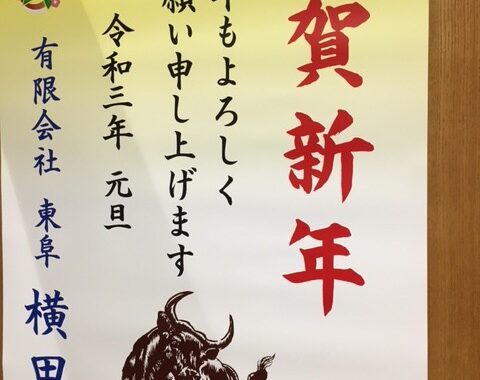 賀新年
年もよろしく
願い申し上げます
令和三年 元旦
有限会社 東阜 横田